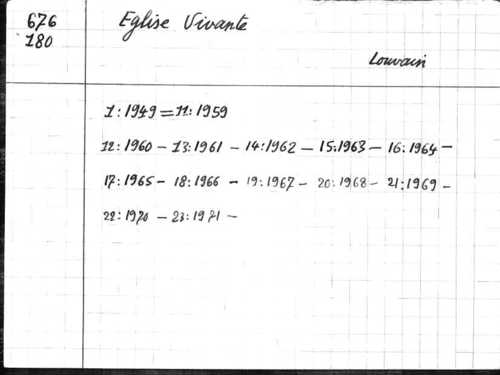 676
180
Eglise Vivante
Louvain
1:1949=11:1959
12:1960 - 13:1961 - 14:1962 - 15:1963 - 16:1964 -
17:1965 - 18:1966 - 19:1967 - 20:1968 - 21:1969 -
22:1970 - 23:1971 -